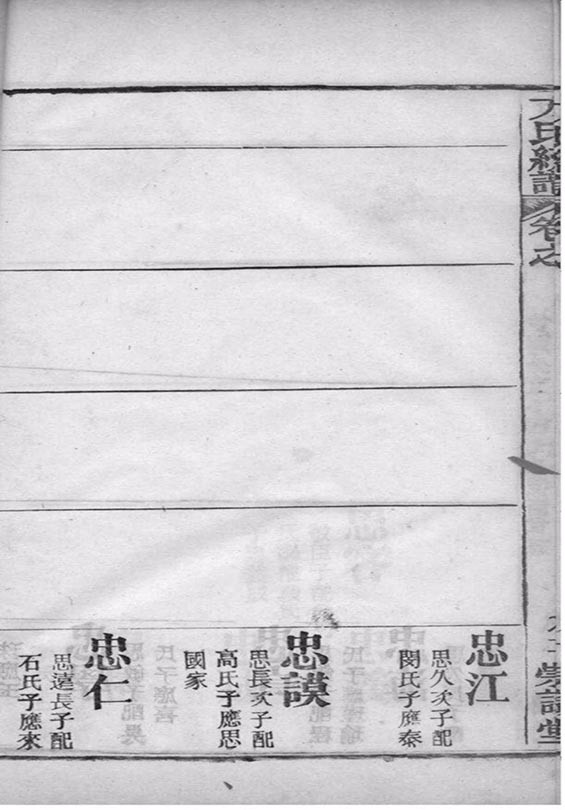 氏總譜
卷之
崇
忠江
思久次子配
閔氏子應泰
忠謨
思長次子配
高氏子應思
國家
忠仁
思遠長子配
石氏子應來